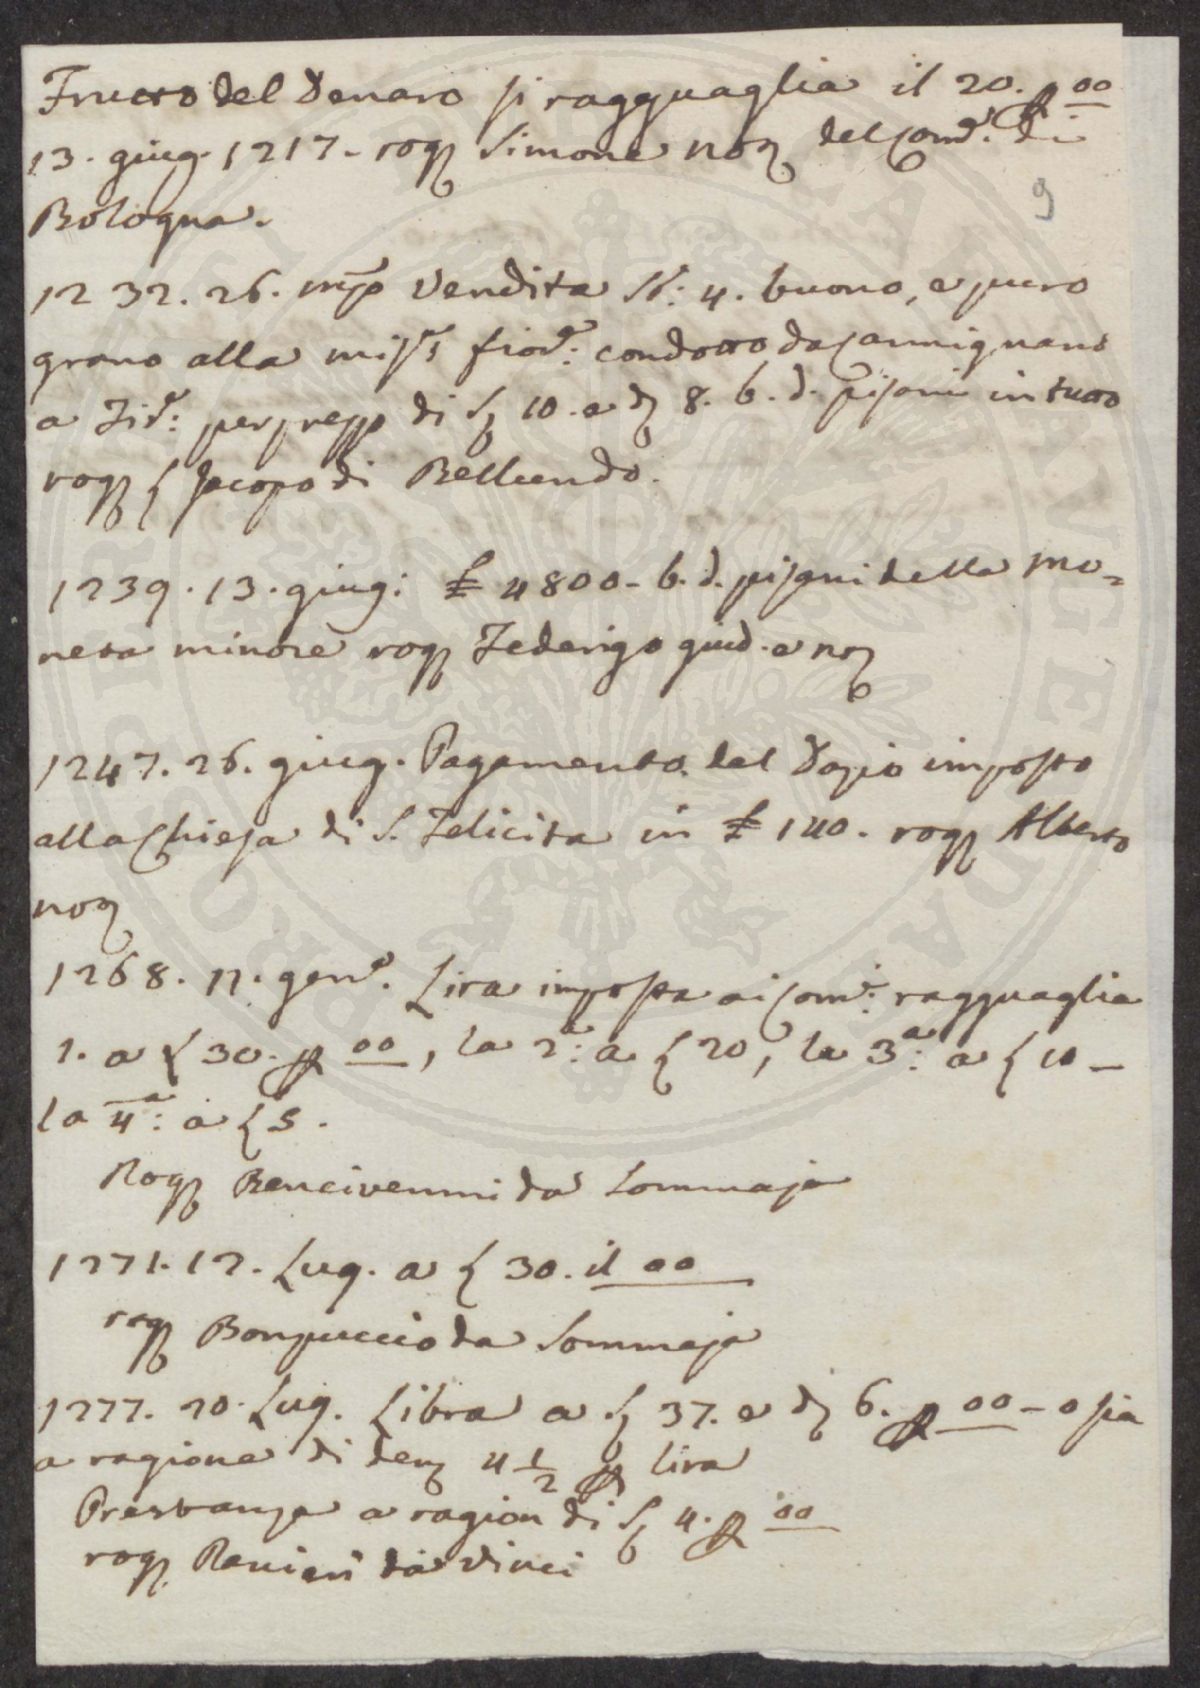 Frutto del Denaro si ragguaglia il 20. p 00
13. giug. 1217. rog. Simone not. del Com.e di
9
Bologna.
1232. 26. mag. Vendita St: 4. buono, e puro
grano alla mis.a fior.a: condotto da Carmignano
a Fir.e: per prezzo di S. 10. e d. 8. b. d. pisani in tutto
rog. S. Jacopo di Bellundo.
1239. 13. giug: £ 4800. b. d. pisani della mo=
neta minore rog. Federigo giud. e not.
1247. 26. giug. Pagamento del Dazio imposto
alla Chiesa di S. Felicita in £ 140. rog. Alberto
not.
1268. 17. gen.o. Lira imposta ai Com.i: ragguaglia
1. a S 30. p 00, la 2.a: a S 20, la 3.a: a S 10 –
la 4.a: a S 5.
Rog. Bencivenni da Sommaja
1271. 12. Lug. a S 30. il 00
rog. Bonpuccio da Sommaja
1277. 20. Lug. Libra a S. 37. e d. 6. p 00 – o sia
a ragione di den. 4 1/2 p lira
Prestanza a ragion di S. 4. p 00
rog. Ranieri da Vinci